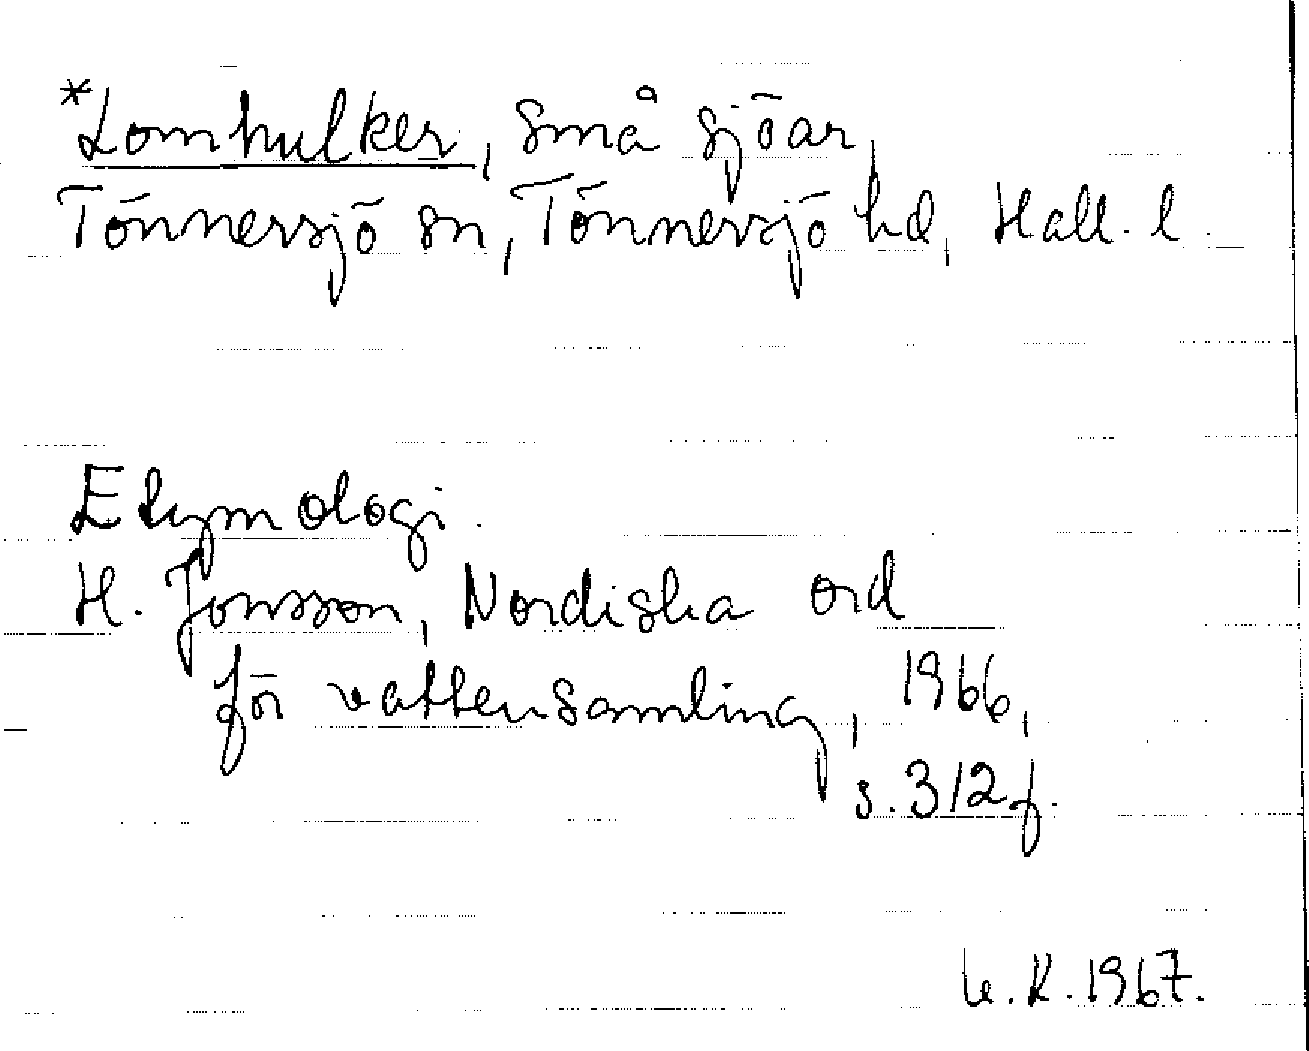 *Lomhulker, små sjöar,
Tönnersjö sn, Tönnersjö hd, Hall. l.
Etymologi.
H. Jonsson, Nordiska ord
för vattensamling, 1966,
s. 312 f.
U.K. 1967.